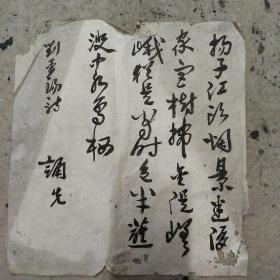 揚子江頭烟景迷隋
家宫樹拂金堤嵯
峨猶有當时色半蘸
波中水鳥栖
劉禹錫詩 誦先